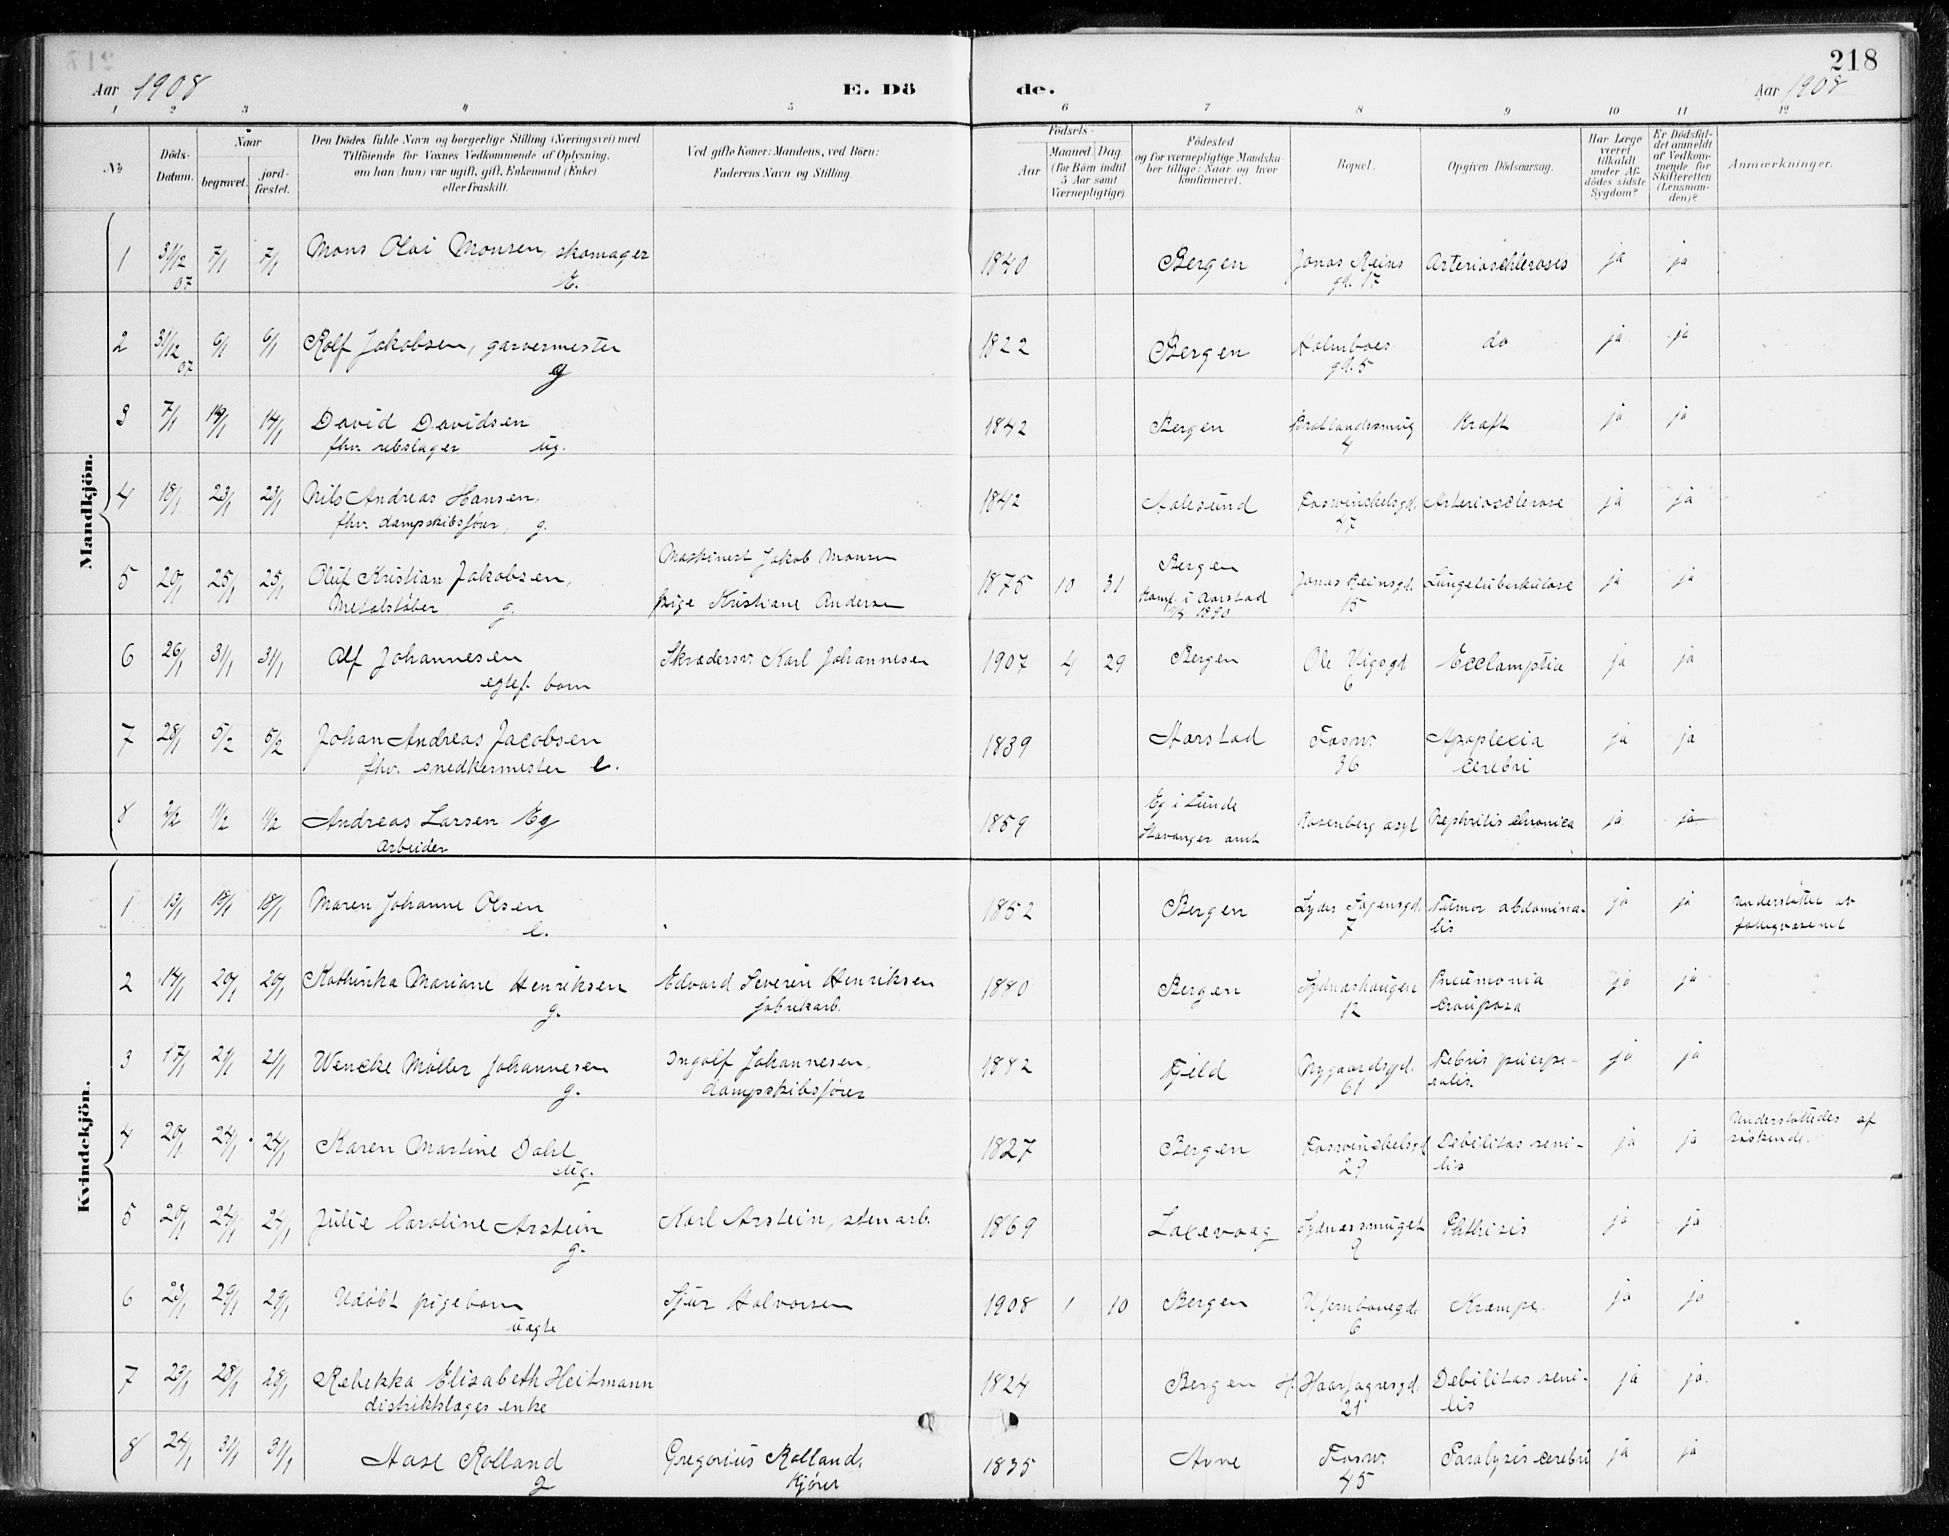 218
Aar 1908
E. Dö
de.
Aar 1908
1 2 3 4 5 6 7 8 9 10 11 12
№
Döds-Datum.
Naar begravet.
jord-fæstet.
Den Dödes fulde Navn og borgerlige Stilling (Næringsvei) med
Tilföiende for Voxnes Vedkommende af Oplysning,
om han (hun) var ugift, gift, Enkemand (Enke)
eller fraskilt.
Ved gifte Koner: Mandens, ved Börn:
Faderens Navn og Stilling.
Födsels-
Aar
Maaned. Dag.
(for Börn indtil
5 Aar samt
Værnepligtige).
Födested
og for værnepligtige Mandska-
ber tillige: Naar og hvor
konfirmeret.
Bopæl.
Opgiven Dödsaarsag.
Har Læge
været
tilkaldt
under Af-
dödes sidste
Sygdom?
Er Dödsfal-
det anmeldt
af Vedkom-
mende for
Skifteretten
(Lensman-
den)?
Anmærkninger.
Mandkjön.
1 31/12 07 7/1 7/1 Mons Olai Monsen, skomager E. 1840 Bergen Jonas Reins gd. 17 Arterioschlerosis ja ja
2 31/12 07 6/1 6/1 Rolf Jakobsen, garvermester g 1822 Bergen Holmboes gd. 5 do ja ja
3 7/1 14/1 14/1 David Davidsen
fhv. rebslager ug. 1842 Bergen 4 Kræft ja ja
4 18/1 23/1 23/1 Nils Andreas Hansen,
fhv. dampskibsfører, g. 1842 Aalesund Fosswinckelsgd. 37 Arteriosclerose ja ja
5 20/1 25/1 25/1 Oluf Kristian Jakobsen,
Metalstøber g. Maskinist Jakob Monsen
pige Kristiane Andersen 1875 10 31 Bergen
Konf. i Aarstad 1890 Jonas Reinsgd. 15 Lungetuberkulose ja ja
6 26/1 31/1 31/1 Alf Johannesen
egtef. barn Skrædersv. Karl Johannesen 1907 4 29 Bergen Ole Vigsgd 6 Ecclamptia ja ja
7 28/1 5/2 5/2 Johan Andreas Jacobsen
fhv. snedkermester e. 1839 Aarstad Fosw. 36 Apoplexia cerebri ja ja
8 2/2 11/2 11/2 Andreas Larsen Eg
Arbeider 1859 Eg i Lunde
Stavanger amt Rosenberg asyl Nephritis chronica ja ja
Kvindekjön.
1 13/1 18/1 18/1 Maren Johanne Olsen e. 1852 Bergen Lyder Sagensgd. 7 Tumor abdomina-
lis ja ja Understøttet av
fattigvæsenet
2 14/1 20/1 20/1 Kathinka Mariane Henriksen g. Edvard Severin Henriksen
fabrikarb. 1880 Bergen Sydnæshaugen 12 Pneumonia
crouposa ja ja
3 17/1 21/1 21/1 Wencke Møller Johannesen g. Ingolf Johannesen,
dampskibsfører 1882 Fjeld Nygaardsgd. 61 Febris puerpe-
ralis. ja ja
4 20/1 24/1 24/1 Karen Martine Dahl ug. 1827 Bergen Fosswinckelsgd 29 Debilitas seni-
lis ja ja Understøttedes af
søskende.
5 20/1 24/1 24/1 Julie Caroline Arstein g. Karl Arstein, stenarb. 1869 Laxevaag Sydnæssmuget 9 Phthisis ja ja
6 23/1 29/1 29/1 Udøbt pigebarn
uægte Sjur Halvorsen 1908 1 10 Bergen 6 Krampe. ja ja
7 23/1 28/1 28/1 Rebekka Elisabeth Heitmann
distriktslæges enke 1824 Bergen H. Haarfagresgd. 21 Debilitas seni-
lis ja ja.
8 24/1 31/1 31/1 Aase Rolland g Gregorius Rolland,
kjører 1835 Arne Fosw. 45 Paralysis cerebri ja ja